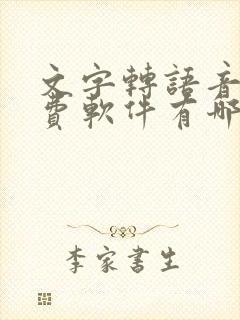 文字轉語音
費軟件有哪
李家書生